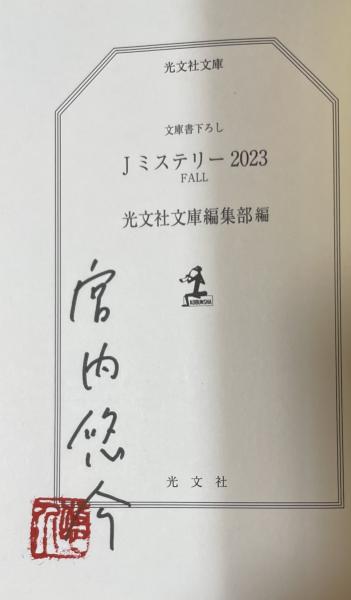 光文社文庫
文庫書下ろし
Jミステリー2023
FALL
光文社文庫編集部 編
KOBUNSHA
光文社
宮内悠介